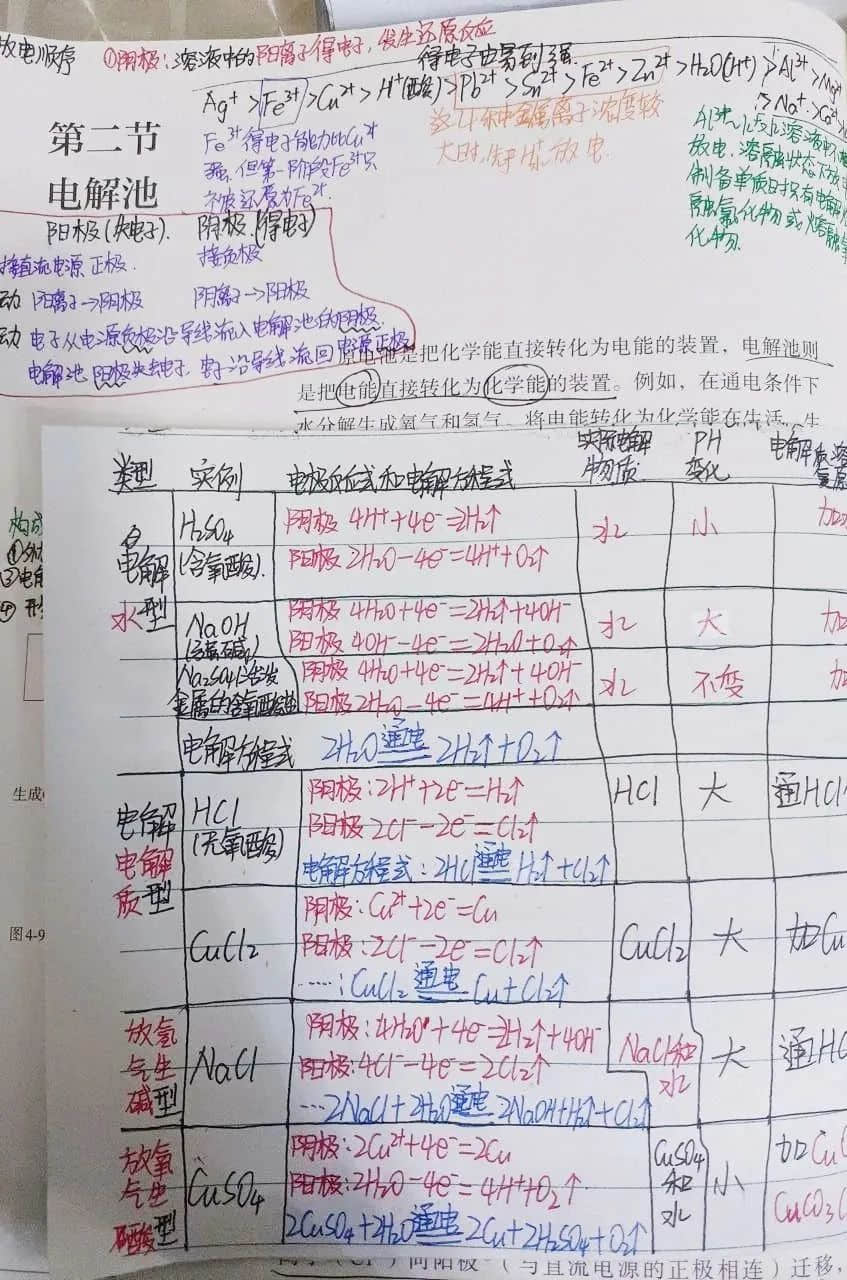 放电顺序 ①阴极:溶液中的阳离子得电子,发生还原反应
得电子由易到强
Ag⁺>Fe³⁺>Cu²⁺>H⁺(酸)>Pb²⁺>Sn²⁺>Fe²⁺>Zn²⁺>H₂O(H⁺)>Al³⁺>Mg²⁺
>Na⁺>Ca²⁺>
Fe³⁺得电子能力比Cu²⁺
强,但第一阶段Fe³⁺只
被还原为Fe²⁺
这几种金属离子浓度较
大时,先于H⁺放电
放电,溶融状态下放电
制备单质时只有电解熔
融氯化物或熔融氧
化物.
第二节
电解池
阳极(失电子). 阴极.(得电子)
接直流电源正极. 接负极
动 阳离子→阴极 阴离子→阳极
动 电子从电源负极沿导线流入电解池的阴极
电解池阳极失去电子,电子沿导线流回电源正极
原电池是把化学能直接转化为电能的装置,电解池则
是把电能直接转化为化学能的装置。例如,在通电条件下
水分解生成氧气和氢气,将电能转化为化学能在生活、生
类型 实例 电极反应式和电解方程式 实际电解物质 PH变化 电解质溶
电解水型 H₂SO₄(含氧酸). 阴极 4H⁺+4e⁻=2H₂↑ 水 小 加
阳极 2H₂O-4e⁻=4H⁺+O₂↑
NaOH 阴极 4H₂O+4e⁻=2H₂↑+4OH⁻ 水 大 加
阳极 4OH⁻-4e⁻=2H₂O+O₂↑
Na₂SO₄(活泼金属的含氧酸盐 阴极 4H₂O+4e⁻=2H₂↑+4OH⁻ 水 不变 加
阳极 2H₂O-4e⁻=4H⁺+O₂↑
电解方程式 2H₂O 通电 2H₂↑+O₂↑
电解电解质型 HCl(无氧酸) 阴极:2H⁺+2e⁻=H₂↑ HCl 大 通HCl
阳极 2Cl⁻-2e⁻=Cl₂↑
电解方程式:2HCl 通电 H₂↑+Cl₂↑
CuCl₂ 阴极:Cu²⁺+2e⁻=Cu CuCl₂ 大 加Cu
阳极:2Cl⁻-2e⁻=Cl₂↑
……:CuCl₂ 通电 Cu+Cl₂↑
放氢气生碱型 NaCl 阴极:4H₂O+4e⁻=2H₂↑+4OH⁻ NaCl和水 大 通HC
阳极:4Cl⁻-4e⁻=2Cl₂↑
…2NaCl+2H₂O 通电 2NaOH+H₂↑+Cl₂↑
放氧气生酸型 CuSO₄ 阴极:2Cu²⁺+4e⁻=2Cu CuSO₄和水 小 加Cu
阳极:2H₂O-4e⁻=4H⁺+O₂↑ CuCO₃
2CuSO₄+2H₂O 通电 2Cu+2H₂SO₄+O₂↑
构成
生成
图4-9
向阳极(与直流电源的正极相连)迁移,